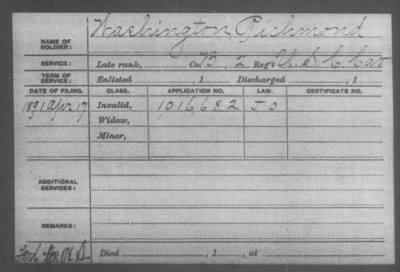 NAME OF SOLDIER: Washington Richmond
SERVICE: Late rank, Co. B, 2 Reg't U. S. C. Cav
TERM OF SERVICE: Enlisted , 1 Discharged , 1
DATE OF FILING. CLASS. APPLICATION NO. LAW. CERTIFICATE NO.
1891 Apr. 17 Invalid, 1,016,682 J O
Widow,
Minor,
ADDITIONAL SERVICES:
REMARKS:
Died , 1 , at